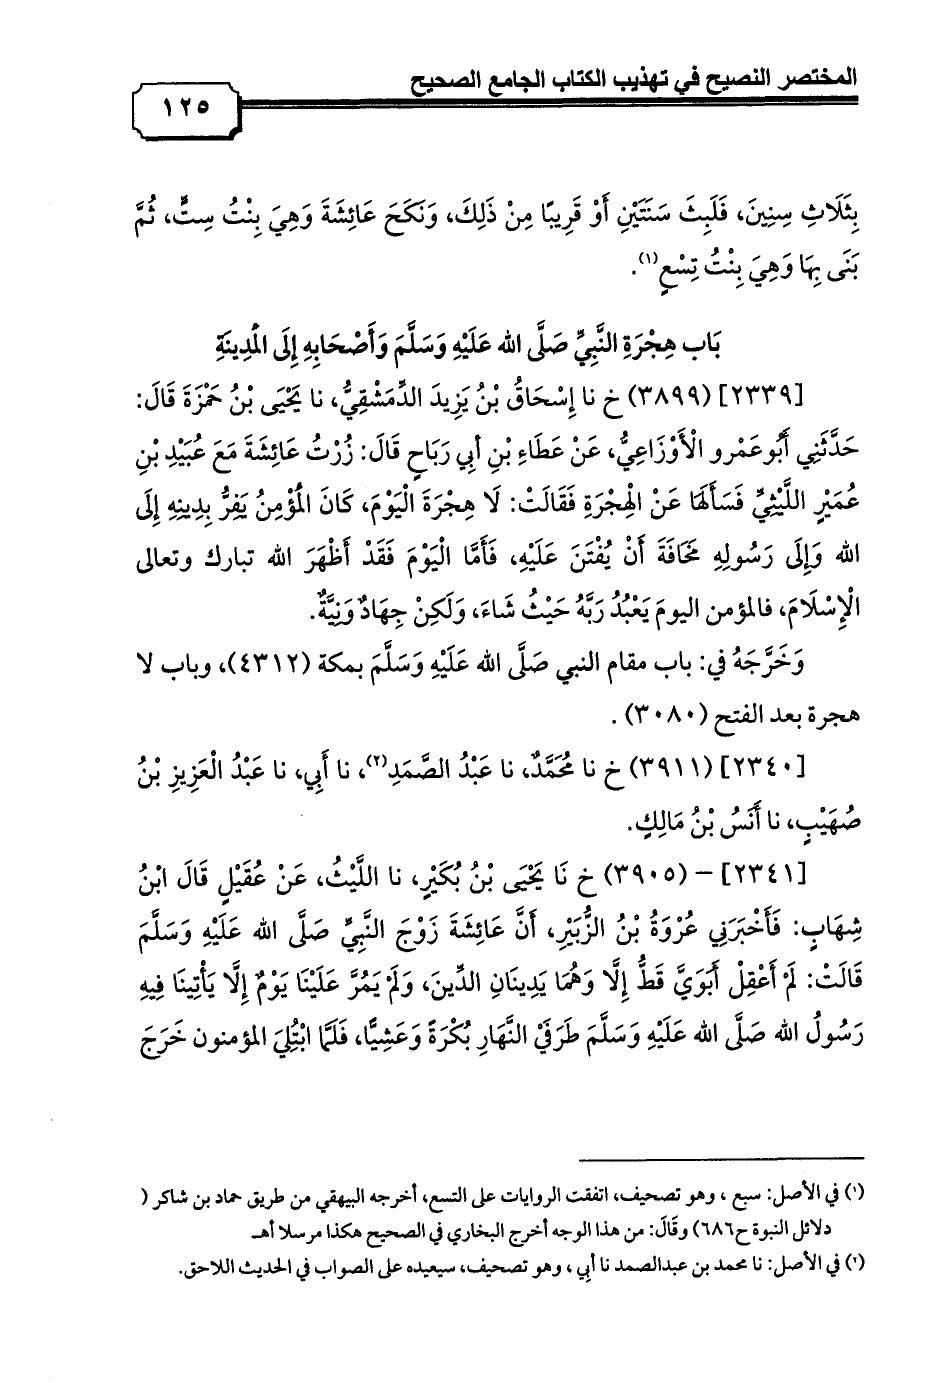 المختصر النصيح في تهذيب الكتاب الجامع الصحيح
١٢٥
بِثَلَاثِ سِنِينَ، فَلَبِثَ سَنَتَيْنِ أَوْ قَرِيبًا مِنْ ذَلِكَ، وَنَكَحَ عَائِشَةَ وَهِيَ بِنْتُ سِتٍّ، ثُمَّ
بَنَى بِهَا وَهِيَ بِنْتُ تِسْعٍ(١).
بَاب هِجْرَةِ النَّبِيِّ صَلَّى الله عَلَيْهِ وَسَلَّمَ وَأَصْحَابِهِ إِلَى الْمَدِينَةِ
[٢٣٣٩] (٣٨٩٩) خ نا إِسْحَاقُ بْنُ يَزِيدَ الدِّمَشْقِيُّ، نا يَحْيَى بْنُ حَمْزَةَ قَالَ:
حَدَّثَنِي أَبُو عَمْرو الْأَوْزَاعِيُّ، عَنْ عَطَاءِ بْنِ أَبِي رَبَاحٍ قَالَ: زُرْتُ عَائِشَةَ مَعَ عُبَيْدِ بْنِ
عُمَيْرٍ اللَّيْثِيِّ فَسَأَلَهَا عَنْ الْهِجْرَةِ فَقَالَتْ: لَا هِجْرَةَ الْيَوْمَ، كَانَ الْمُؤْمِنُ يَفِرُّ بِدِينِهِ إِلَى
الله وَإِلَى رَسُولِهِ مَخَافَةَ أَنْ يُفْتَنَ عَلَيْهِ، فَأَمَّا الْيَوْمَ فَقَدْ أَظْهَرَ الله تبارك وتعالى
الْإِسْلَامَ، فالمؤمن اليومَ يَعْبُدُ رَبَّهُ حَيْثُ شَاءَ، وَلَكِنْ جِهَادٌ وَنِيَّةٌ.
وَخَرَّجَهُ في: باب مقام النبي صَلَّى الله عَلَيْهِ وَسَلَّمَ بمكة (٤٣١٢)، وباب لا
هجرة بعد الفتح (٣٠٨٠) .
[٢٣٤٠] (٣٩١١) خ نا مُحَمَّدٌ، نا عَبْدُ الصَّمَدِ(٢)، نا أَبِي، نا عَبْدُ الْعَزِيزِ بْنُ
صُهَيْبٍ، نا أَنَسُ بْنُ مَالِكٍ.
[٢٣٤١] – (٣٩٠٥) خ نَا يَحْيَى بْنُ بُكَيْرٍ، نا اللَّيْثُ، عَنْ عُقَيْلٍ قَالَ ابْنُ
شِهَابٍ: فَأَخْبَرَنِي عُرْوَةُ بْنُ الزُّبَيْرِ، أَنَّ عَائِشَةَ زَوْجَ النَّبِيِّ صَلَّى الله عَلَيْهِ وَسَلَّمَ
قَالَتْ: لَمْ أَعْقِلْ أَبَوَيَّ قَطُّ إِلَّا وَهُمَا يَدِينَانِ الدِّينَ، وَلَمْ يَمُرَّ عَلَيْنَا يَوْمٌ إِلَّا يَأْتِينَا فِيهِ
رَسُولُ الله صَلَّى الله عَلَيْهِ وَسَلَّمَ طَرَفَيْ النَّهَارِ بُكْرَةً وَعَشِيًّا، فَلَمَّا ابْتُلِيَ المؤمنون خَرَجَ
(١) في الأصل: سبع ، وهو تصحيف، اتفقت الروايات على التسع، أخرجه البيهقي من طريق حماد بن شاكر (
دلائل النبوة ح٦٨٦) وقَالَ: من هذا الوجه أخرج البخاري في الصحيح هكذا مرسلا أهـ
(٢) في الأصل: نا محمد بن عبدالصمد نا أبي ، وهو تصحيف، سيعيده على الصواب في الحديث اللاحق.